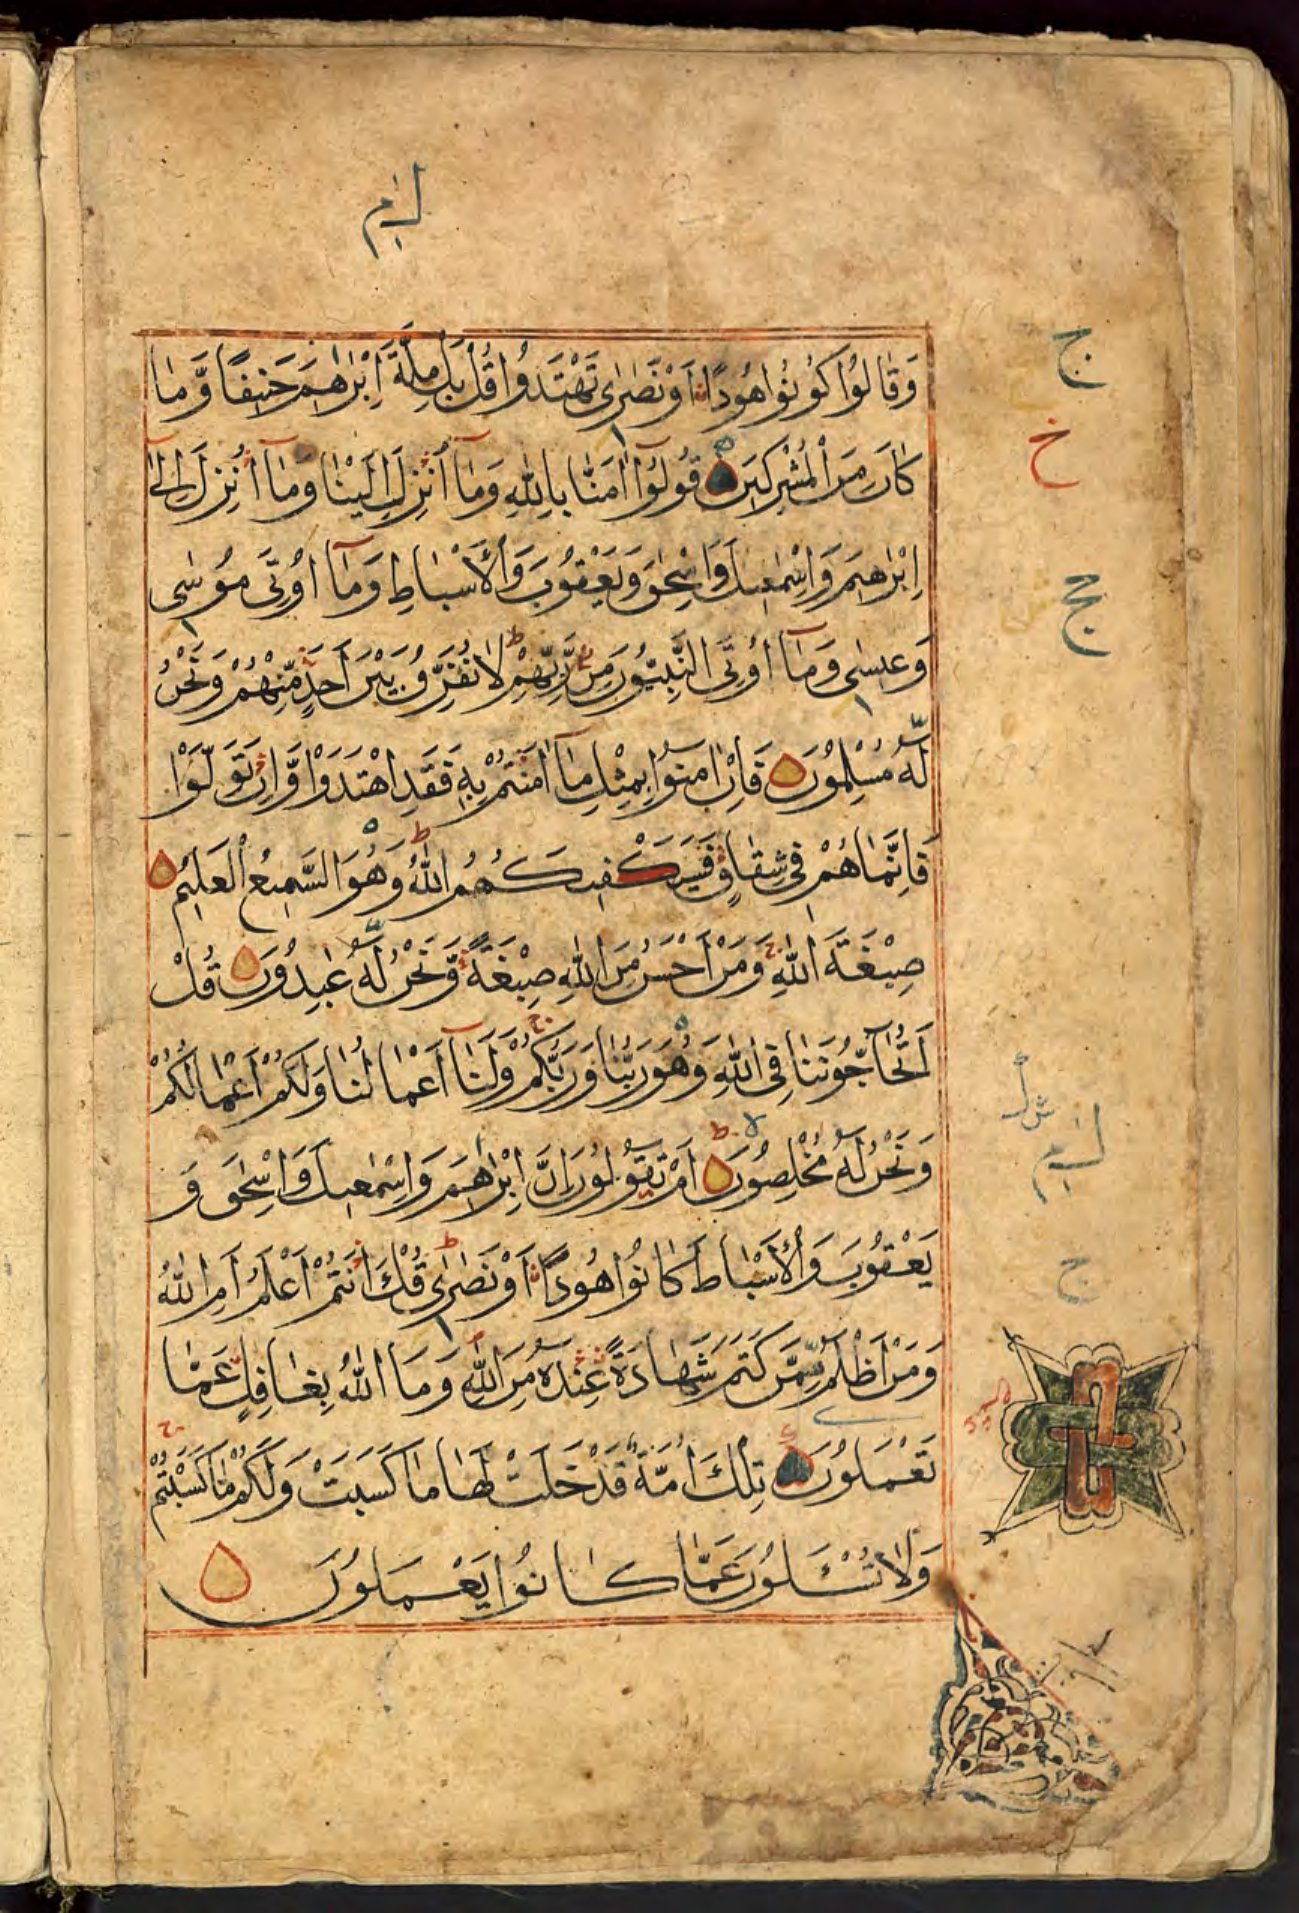 وَقَالُوا كُونُوا هُودًا أَوْ نَصٰرٰى تَهْتَدُوا قُلْ بَلْ مِلَّةَ اِبْرٰهٖمَ حَنِيفًا وَّمَا
كَانَ مِنَ الْمُشْرِكِينَ قُولُوٓا اٰمَنَّا بِاللّٰهِ وَمَآ اُنْزِلَ اِلَيْنَا وَمَآ اُنْزِلَ اِلٰٓى
اِبْرٰهٖمَ وَاِسْمٰعِيلَ وَاِسْحٰقَ وَيَعْقُوبَ وَالْاَسْبَاطِ وَمَآ اُوتِيَ مُوسٰى
وَعِيسٰى وَمَآ اُوتِيَ النَّبِيُّونَ مِنْ رَّبِّهِمْ لَا نُفَرِّقُ بَيْنَ اَحَدٍ مِّنْهُمْ وَنَحْنُ
لَهُ مُسْلِمُونَ فَاِنْ اٰمَنُوا بِمِثْلِ مَآ اٰمَنْتُمْ بِهٖ فَقَدِ اهْتَدَوْا وَّاِنْ تَوَلَّوْا
فَاِنَّمَا هُمْ فِي شِقَاقٍ فَسَيَكْفِيكَهُمُ اللّٰهُ وَهُوَ السَّمِيعُ الْعَلِيمُ
صِبْغَةَ اللّٰهِ وَمَنْ اَحْسَنُ مِنَ اللّٰهِ صِبْغَةً وَّنَحْنُ لَهُ عٰبِدُونَ قُلْ
اَتُحَآجُّونَنَا فِي اللّٰهِ وَهُوَ رَبُّنَا وَرَبُّكُمْ وَلَنَآ اَعْمَالُنَا وَلَكُمْ اَعْمَالُكُمْ
وَنَحْنُ لَهُ مُخْلِصُونَ اَمْ تَقُولُونَ اِنَّ اِبْرٰهٖمَ وَاِسْمٰعِيلَ وَاِسْحٰقَ وَ
يَعْقُوبَ وَالْاَسْبَاطَ كَانُوا هُودًا اَوْ نَصٰرٰى قُلْ ءَاَنْتُمْ اَعْلَمُ اَمِ اللّٰهُ
وَمَنْ اَظْلَمُ مِمَّنْ كَتَمَ شَهَادَةً عِنْدَهُ مِنَ اللّٰهِ وَمَا اللّٰهُ بِغَافِلٍ عَمَّا
تَعْمَلُونَ تِلْكَ اُمَّةٌ قَدْ خَلَتْ لَهَا مَا كَسَبَتْ وَلَكُمْ مَّا كَسَبْتُمْ
وَلَا تُسْـَٔلُونَ عَمَّا كَانُوا يَعْمَلُونَ